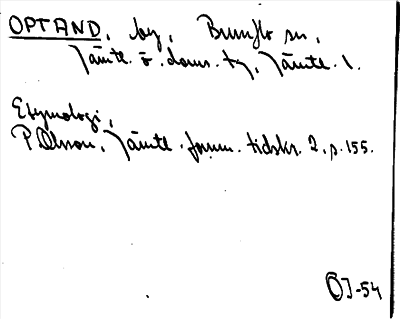 OPTAND, by, Brunflo sn,
Jämtl. ö. doms. tg, Jämtl. l.
Etymologi,
P Olsson, Jämtl. fornm. tidskr. 2, p. 155.
OJ-54